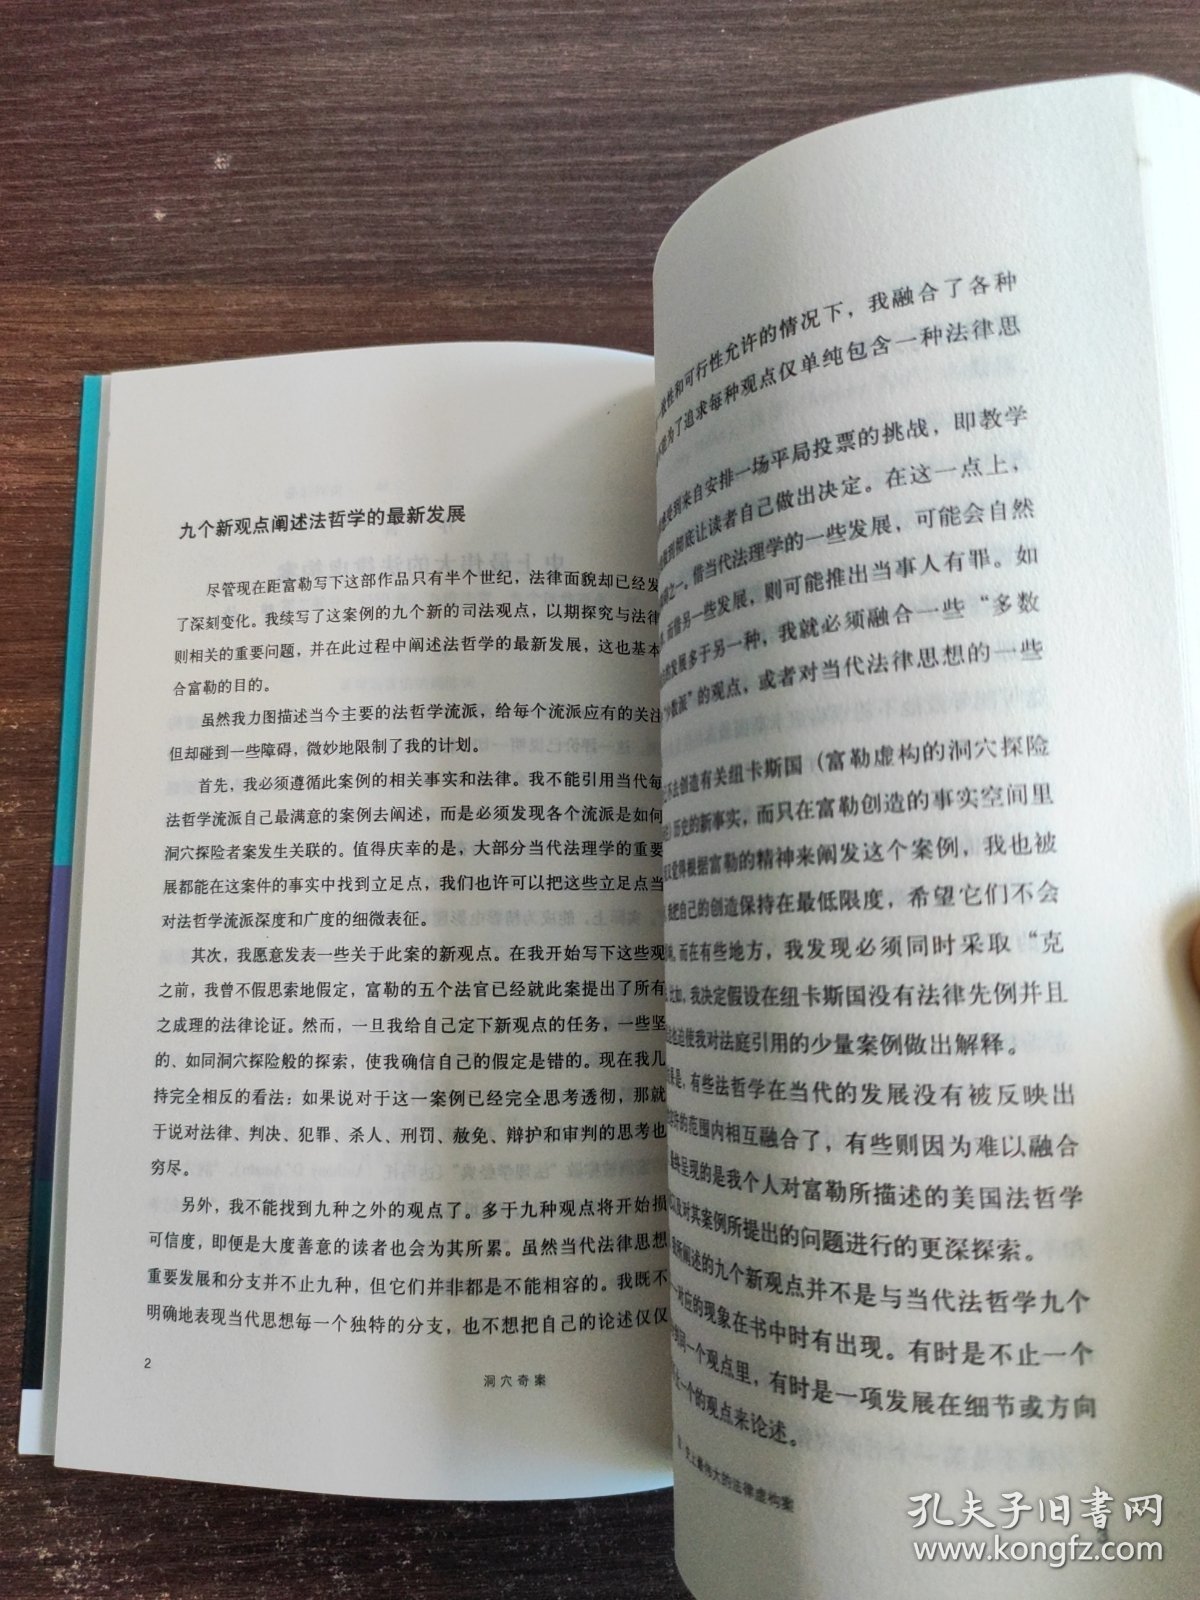 九个新观点阐述法哲学的最新发展
尽管现在距富勒写下这部作品只有半个世纪，法律面貌却已经发
了深刻变化。我续写了这案例的九个新的司法观点，以期探究与法律
则相关的重要问题，并在此过程中阐述法哲学的最新发展，这也基本
合富勒的目的。
虽然我力图描述当今主要的法哲学流派，给每个流派应有的关注
但却碰到一些障碍，微妙地限制了我的计划。
首先，我必须遵循此案例的相关事实和法律。我不能引用当代每
法哲学流派自己最满意的案例去阐述，而是必须发现各个流派是如何
洞穴探险者案发生关联的。值得庆幸的是，大部分当代法理学的重要
展都能在这案件的事实中找到立足点，我们也许可以把这些立足点当
对法哲学流派深度和广度的细微表征。
其次，我愿意发表一些关于此案的新观点。在我开始写下这些观
之前，我曾不假思索地假定，富勒的五个法官已经就此案提出了所有
之成理的法律论证。然而，一旦我给自己定下新观点的任务，一些坚
的、如同洞穴探险般的探索，使我确信自己的假定是错的。现在我几
持完全相反的看法：如果说对于这一案例已经完全思考透彻，那就
于说对法律、判决、犯罪、杀人、刑罚、赦免、辩护和审判的思考也
穷尽。
另外，我不能找到九种之外的观点了。多于九种观点将开始损
可信度，即便是大度善意的读者也会为其所累。虽然当代法律思想
重要发展和分支并不止九种，但它们并非都是不能相容的。我既不
明确地表现当代思想每一个独特的分支，也不想把自己的论述仅仅
2
洞穴奇案
性和可行性允许的情况下，我融合了各种
为了追求每种观点仅单纯包含一种法律思
到来自安排一场平局投票的挑战，即教学
到彻底让读者自己做出决定。在这一点上，
之一。借当代法理学的一些发展，可能会自然
而借另一些发展，则可能推出当事人有罪。如
发展多于另一种，我就必须融合一些“多数
少数派”的观点，或者对当代法律思想的一些
去创造有关纽卡斯国（富勒虚构的洞穴探险
历史的新事实，而只在富勒创造的事实空间里
根据富勒的精神来阐发这个案例，我也被
把自己的创造保持在最低限度，希望它们不会
而在有些地方，我发现必须同时采取“克
比如，我决定假设在纽卡斯国没有法律先例并且
也迫使我对法庭引用的少量案例做出解释。
是，有些法哲学在当代的发展没有被反映出
的范围内相互融合了，有些则因为难以融合
终呈现的是我个人对富勒所描述的美国法哲学
及对其案例所提出的问题进行的更深探索。
所阐述的九个新观点并不是与当代法哲学九个
对应的现象在书中时有出现。有时是不止一个
同一个观点里，有时是一项发展在细节或方向
一个的观点来论述。
史上最伟大的法律虚构案
孔夫子旧书网
www.kongfz.com